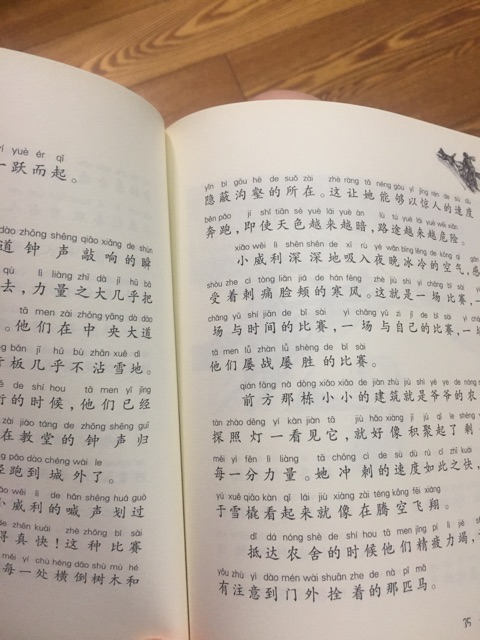 yí yuè ér qǐ
一跃而起。
dào zhōng shēng qiāo xiǎng de shùn
道钟声敲响的瞬
qù lì liàng zhī dà jī hū bǎ
去,力量之大几乎把
tā men zài zhōng yāng dà dào
。他们在中央大道
bǎn jī hū bù zhān xuě dì
板几乎不沾雪地。
de shí hou tā men yǐ jīng
的时候,他们已经
zài jiào táng de zhōng shēng guī
在教堂的钟声归
pǎo dào chéng wài le
跑到城外了。
wēi lì de hǎn shēng huá guò
小威利的喊声划过
de zhēn kuài zhè zhǒng bǐ sài
得真快!这种比赛
měi yí chù héng dǎo shù mù hé
每一处横倒树木和
yǐn bì gōu hè de suǒ zài zhè ràng tā néng gòu yǐ jīng rén de sù dù
隐蔽沟壑的所在。这让她能够以惊人的速度
bēn pǎo jí shǐ tiān sè yuè lái yuè àn lù tú yuè lái yuè wēi xiǎn
奔跑,即使天色越来越暗,路途越来越危险。
xiǎo wēi lì shēn shēn de xī rù yè wǎn bīng lěng de kōng qì gǎn
小威利深深地吸入夜晚冰冷的空气,感
shòu zhe cì tòng liǎn jiá de hán fēng zhè jiù shì yì chǎng bǐ sài
受着刺痛脸颊的寒风。这就是一场比赛,一
chǎng yǔ shí jiān de bǐ sài yì chǎng yǔ zì jǐ de bǐ sài yì
场与时间的比赛,一场与自己的比赛,一
tā men lǚ zhàn lǚ shèng de bǐ sài
他们屡战屡胜的比赛。
qián fāng nà dòng xiǎo xiǎo de jiàn zhù jiù shì yé ye de nóng
前方那栋小小的建筑就是爷爷的农
tàn zhào dēng yí kàn jiàn tā jiù hǎo xiàng jī jù qǐ le shèng
探照灯一看见它,就好像积聚起了剩
měi yì fēn lì liàng tā chōng cì de sù dù rú cǐ zhī kuài
每一分力量。她冲刺的速度如此之快,
yú xuě qiāo kàn qǐ lái jiù xiàng zài téng kōng fēi xiáng
于雪橇看起来就像在腾空飞翔。
dǐ dá nóng shè de shí hou tā men jīng pí lì jié
抵达农舍的时候他们精疲力竭,
yǒu zhù yì dào mén wài shuān zhe de nà pǐ mǎ
有注意到门外拴着的那匹马。
35